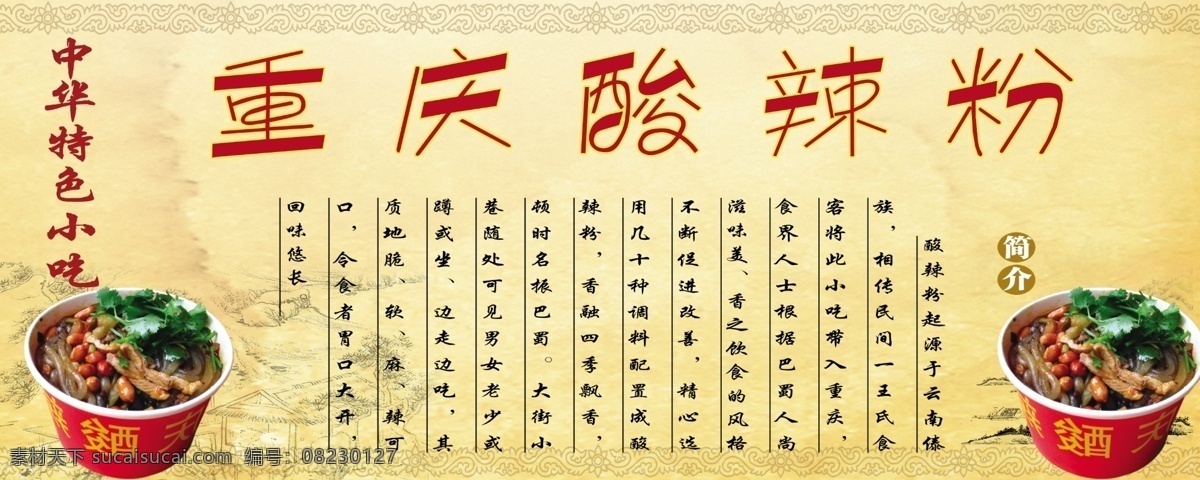 重庆酸辣粉
中华特色小吃
简介
酸辣粉起源于云南傣
族，相传民间一王氏食
客将此小吃带入重庆，
食界人士根据巴蜀人尚
滋味美、香之饮食的风格
不断促进改善，精心选
用几十种调料配置成酸
辣粉，香融四季飘香，
顿时名振巴蜀。大街小
巷随处可见男女老少或
蹲或坐、边走边吃，其
质地脆、软、麻、辣可
口，令食者胃口大开，
回味悠长
酸
酸
素材天下 sucaisucai.com 编号：08230127